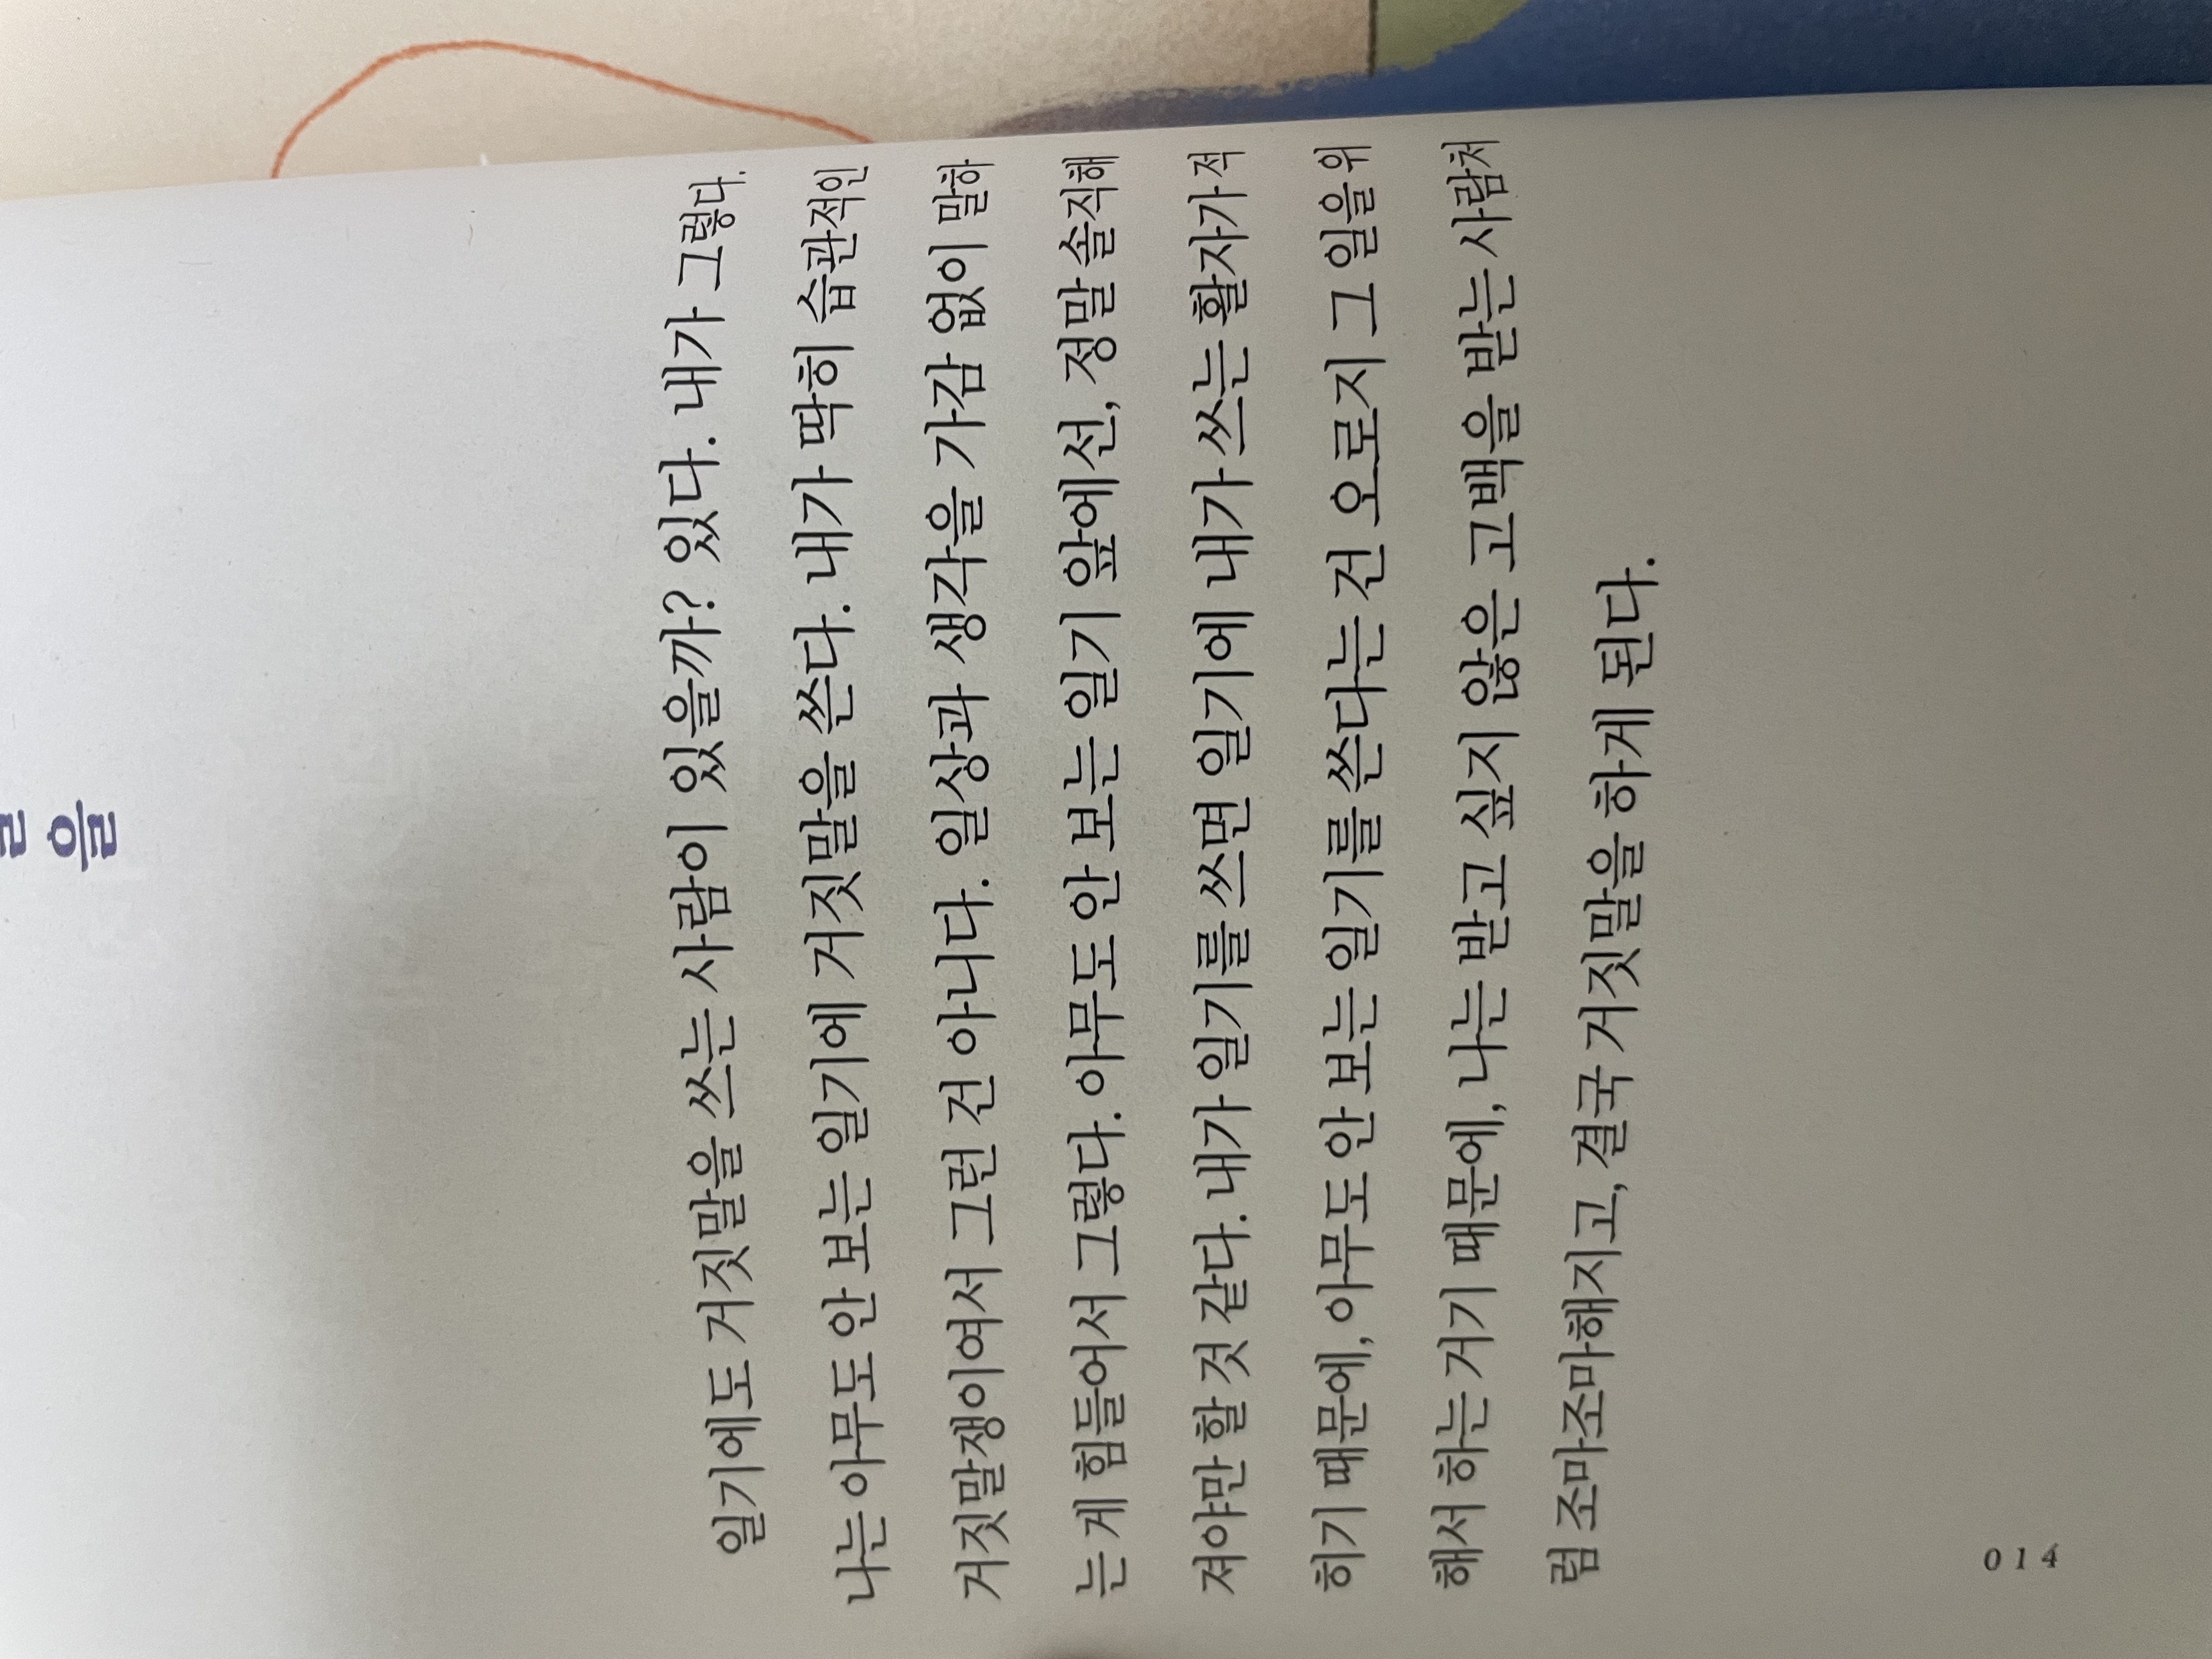 을
일기에도 거짓말을 쓰는 사람이 있을까? 있다. 내가 그렇다.
나는 아무도 안 보는 일기에 거짓말을 쓴다. 내가 딱히 습관적인
거짓말쟁이여서 그런 건 아니다. 일상과 생각을 가감 없이 말하
는 게 힘들어서 그렇다. 아무도 안 보는 일기 앞에선, 정말 솔직해
져야만 할 것 같다. 내가 일기를 쓰면 일기에 내가 쓰는 활자가 적
히기 때문에, 아무도 안 보는 일기를 쓴다는 건 오로지 그 일을 위
해서 하는 거기 때문에, 나는 받고 싶지 않은 고백을 받는 사람처
럼 조마조마해지고, 결국 거짓말을 하게 된다.
014